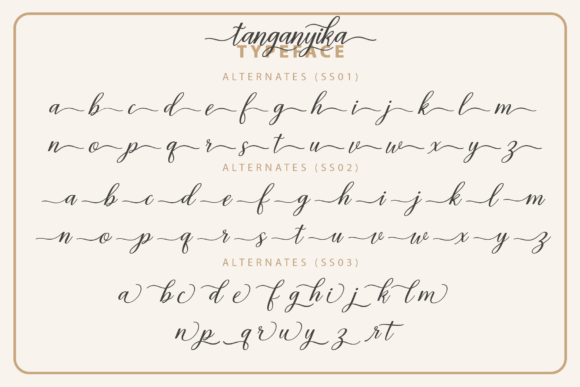 tanganyika
TYPEFACE
ALTERNATES (SS01)
a b c d e f g h i j k l m
n o p q r s t u v w x y z
ALTERNATES (SS02)
a b c d e f g h i j k l m
n o p q r s t u v w x y z
ALTERNATES (SS03)
a b c d e f g h i j k l m
n p q r u w y z r t